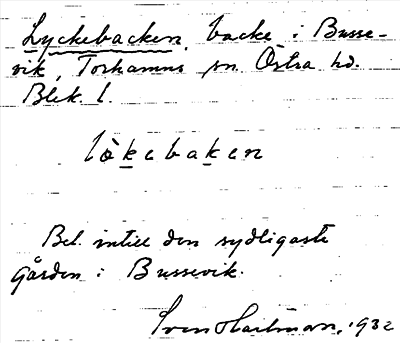 Lyckebacken, backe i Busse-
vik, Torhamns sn. Östra hd.
Blek. l.
lòkebaken
Bel. intill den sydligaste
gården i Bussevik.
Sven Hartman, 1932